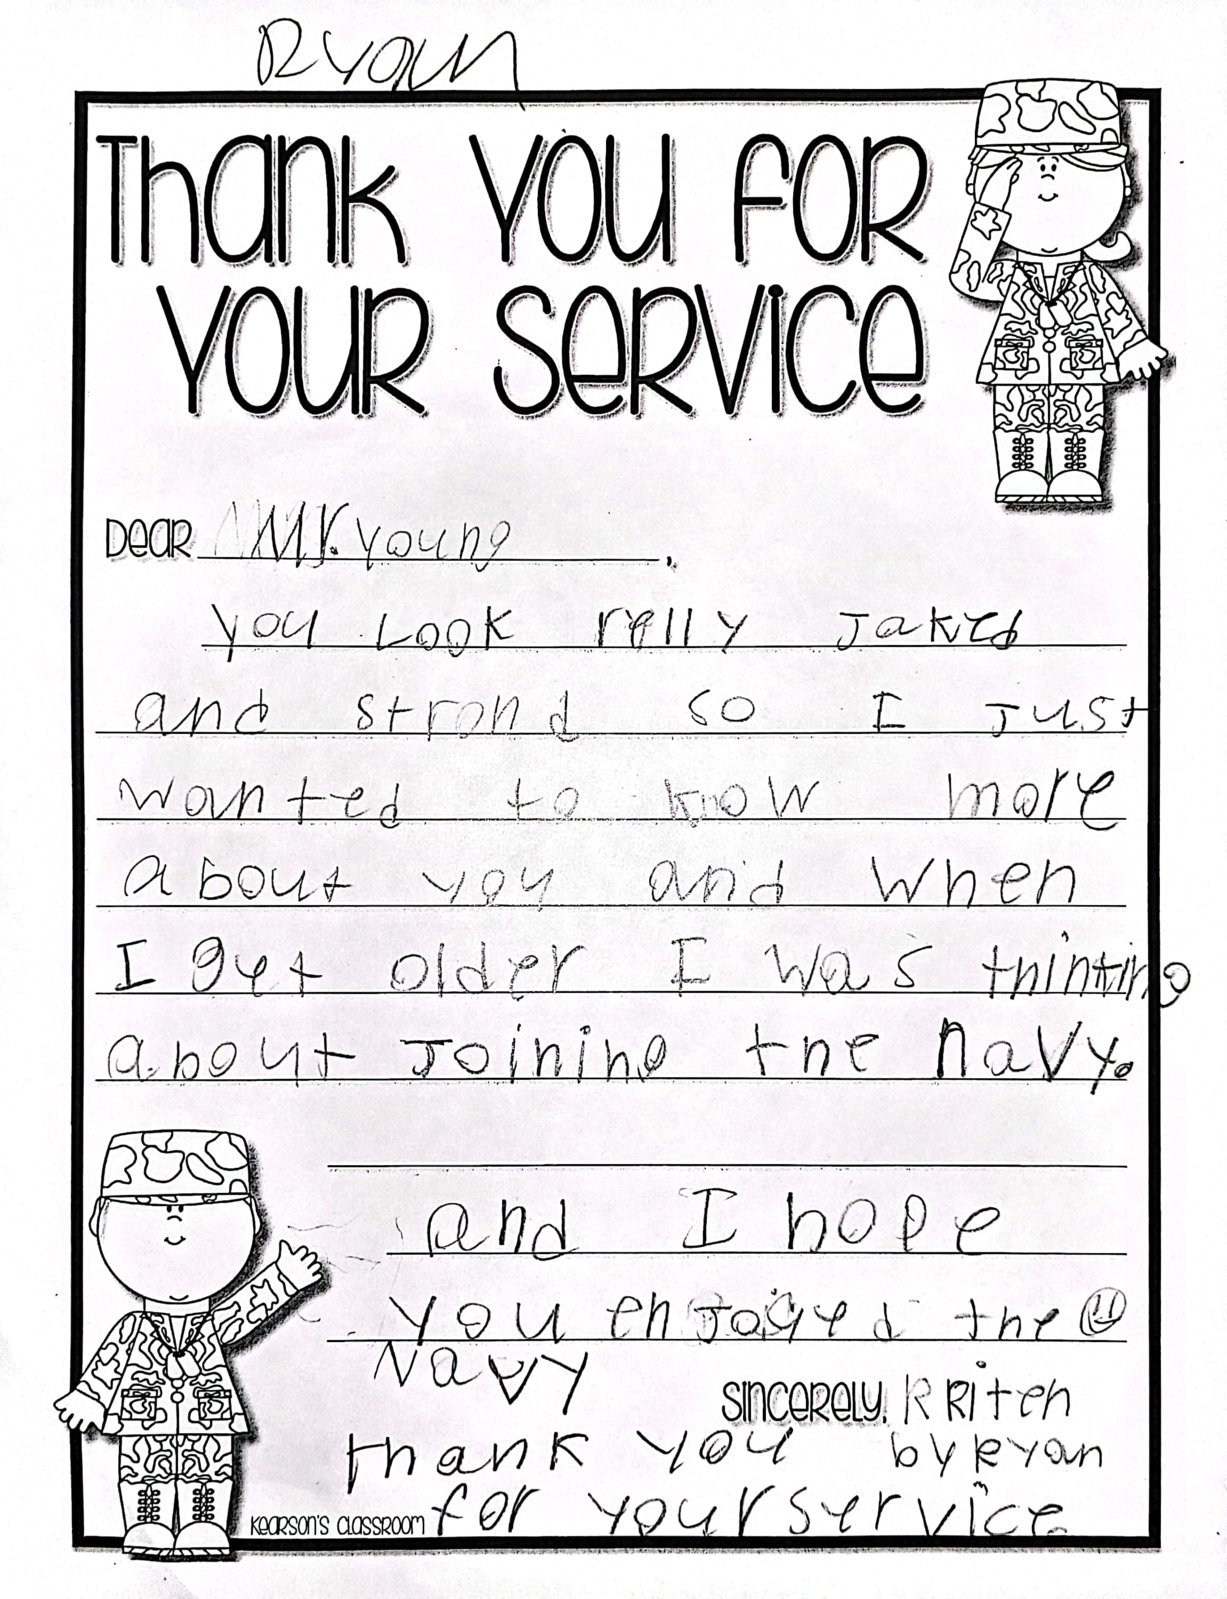 Ryan
Thank you for
your service
Dear Mr. Young,
you Look relly Jaked
and strond so I Just
wanted to know more
about you and when
I get older I was thinting
about Joining the Navy.
and I hope
you enJoyed the
Navy
Sincerely, R Riten
thank you by Ryan
Kearson's Classroom for your service.